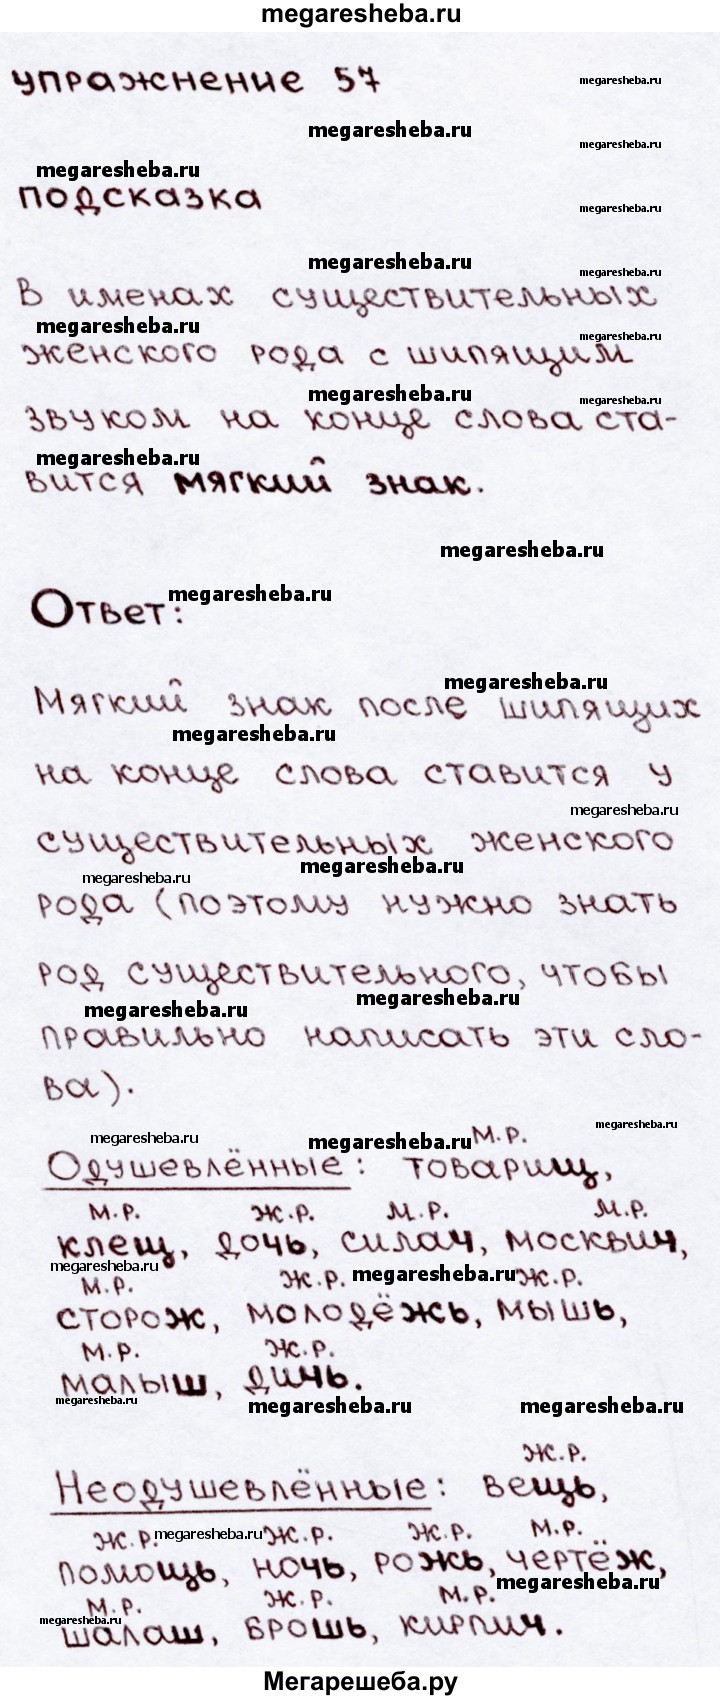 megaresheba.ru
упражнение 57
megaresheba.ru
megaresheba.ru
megaresheba.ru
megaresheba.ru
подсказка
megaresheba.ru
megaresheba.ru
megaresheba.ru
В именах существительных
megaresheba.ru
megaresheba.ru
женского рода с шипящим
megaresheba.ru
megaresheba.ru
звуком на конце слова ста-
megaresheba.ru
вится мягкий знак.
megaresheba.ru
megaresheba.ru
Ответ:
megaresheba.ru
Мягкий знак после шипящих
megaresheba.ru
на конце слова ставится у
megaresheba.ru
существительных женского
megaresheba.ru
megaresheba.ru
рода (поэтому нужно знать
род существительного, чтобы
megaresheba.ru
megaresheba.ru
правильно написать эти сло-
ва).
megaresheba.ru
megaresheba.ru
megaresheba.ru
м.р.
Одушевлённые: товарищ,
м.р. ж.р. м.р. м.р.
клещ, дочь, силач, москвич,
megaresheba.ru
megaresheba.ru
м.р. ж.р. ж.р.
сторож, молодёжь, мышь,
м.р. ж.р.
малыш, дичь.
megaresheba.ru
megaresheba.ru
megaresheba.ru
ж.р.
Неодушевлённые: вещь,
ж.р. megaresheba.ru ж.р. ж.р. м.р.
помощь, ночь, рожь, чертёж,
megaresheba.ru
м.р. ж.р. м.р.
megaresheba.ru
шалаш, брошь, кирпич.
Мегарешеба.ру